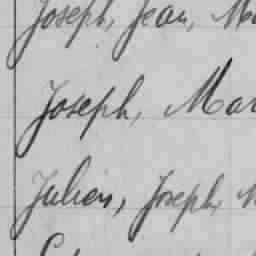 Joseph, Jean, Ma
Joseph, Mar
Julien, Joseph, M